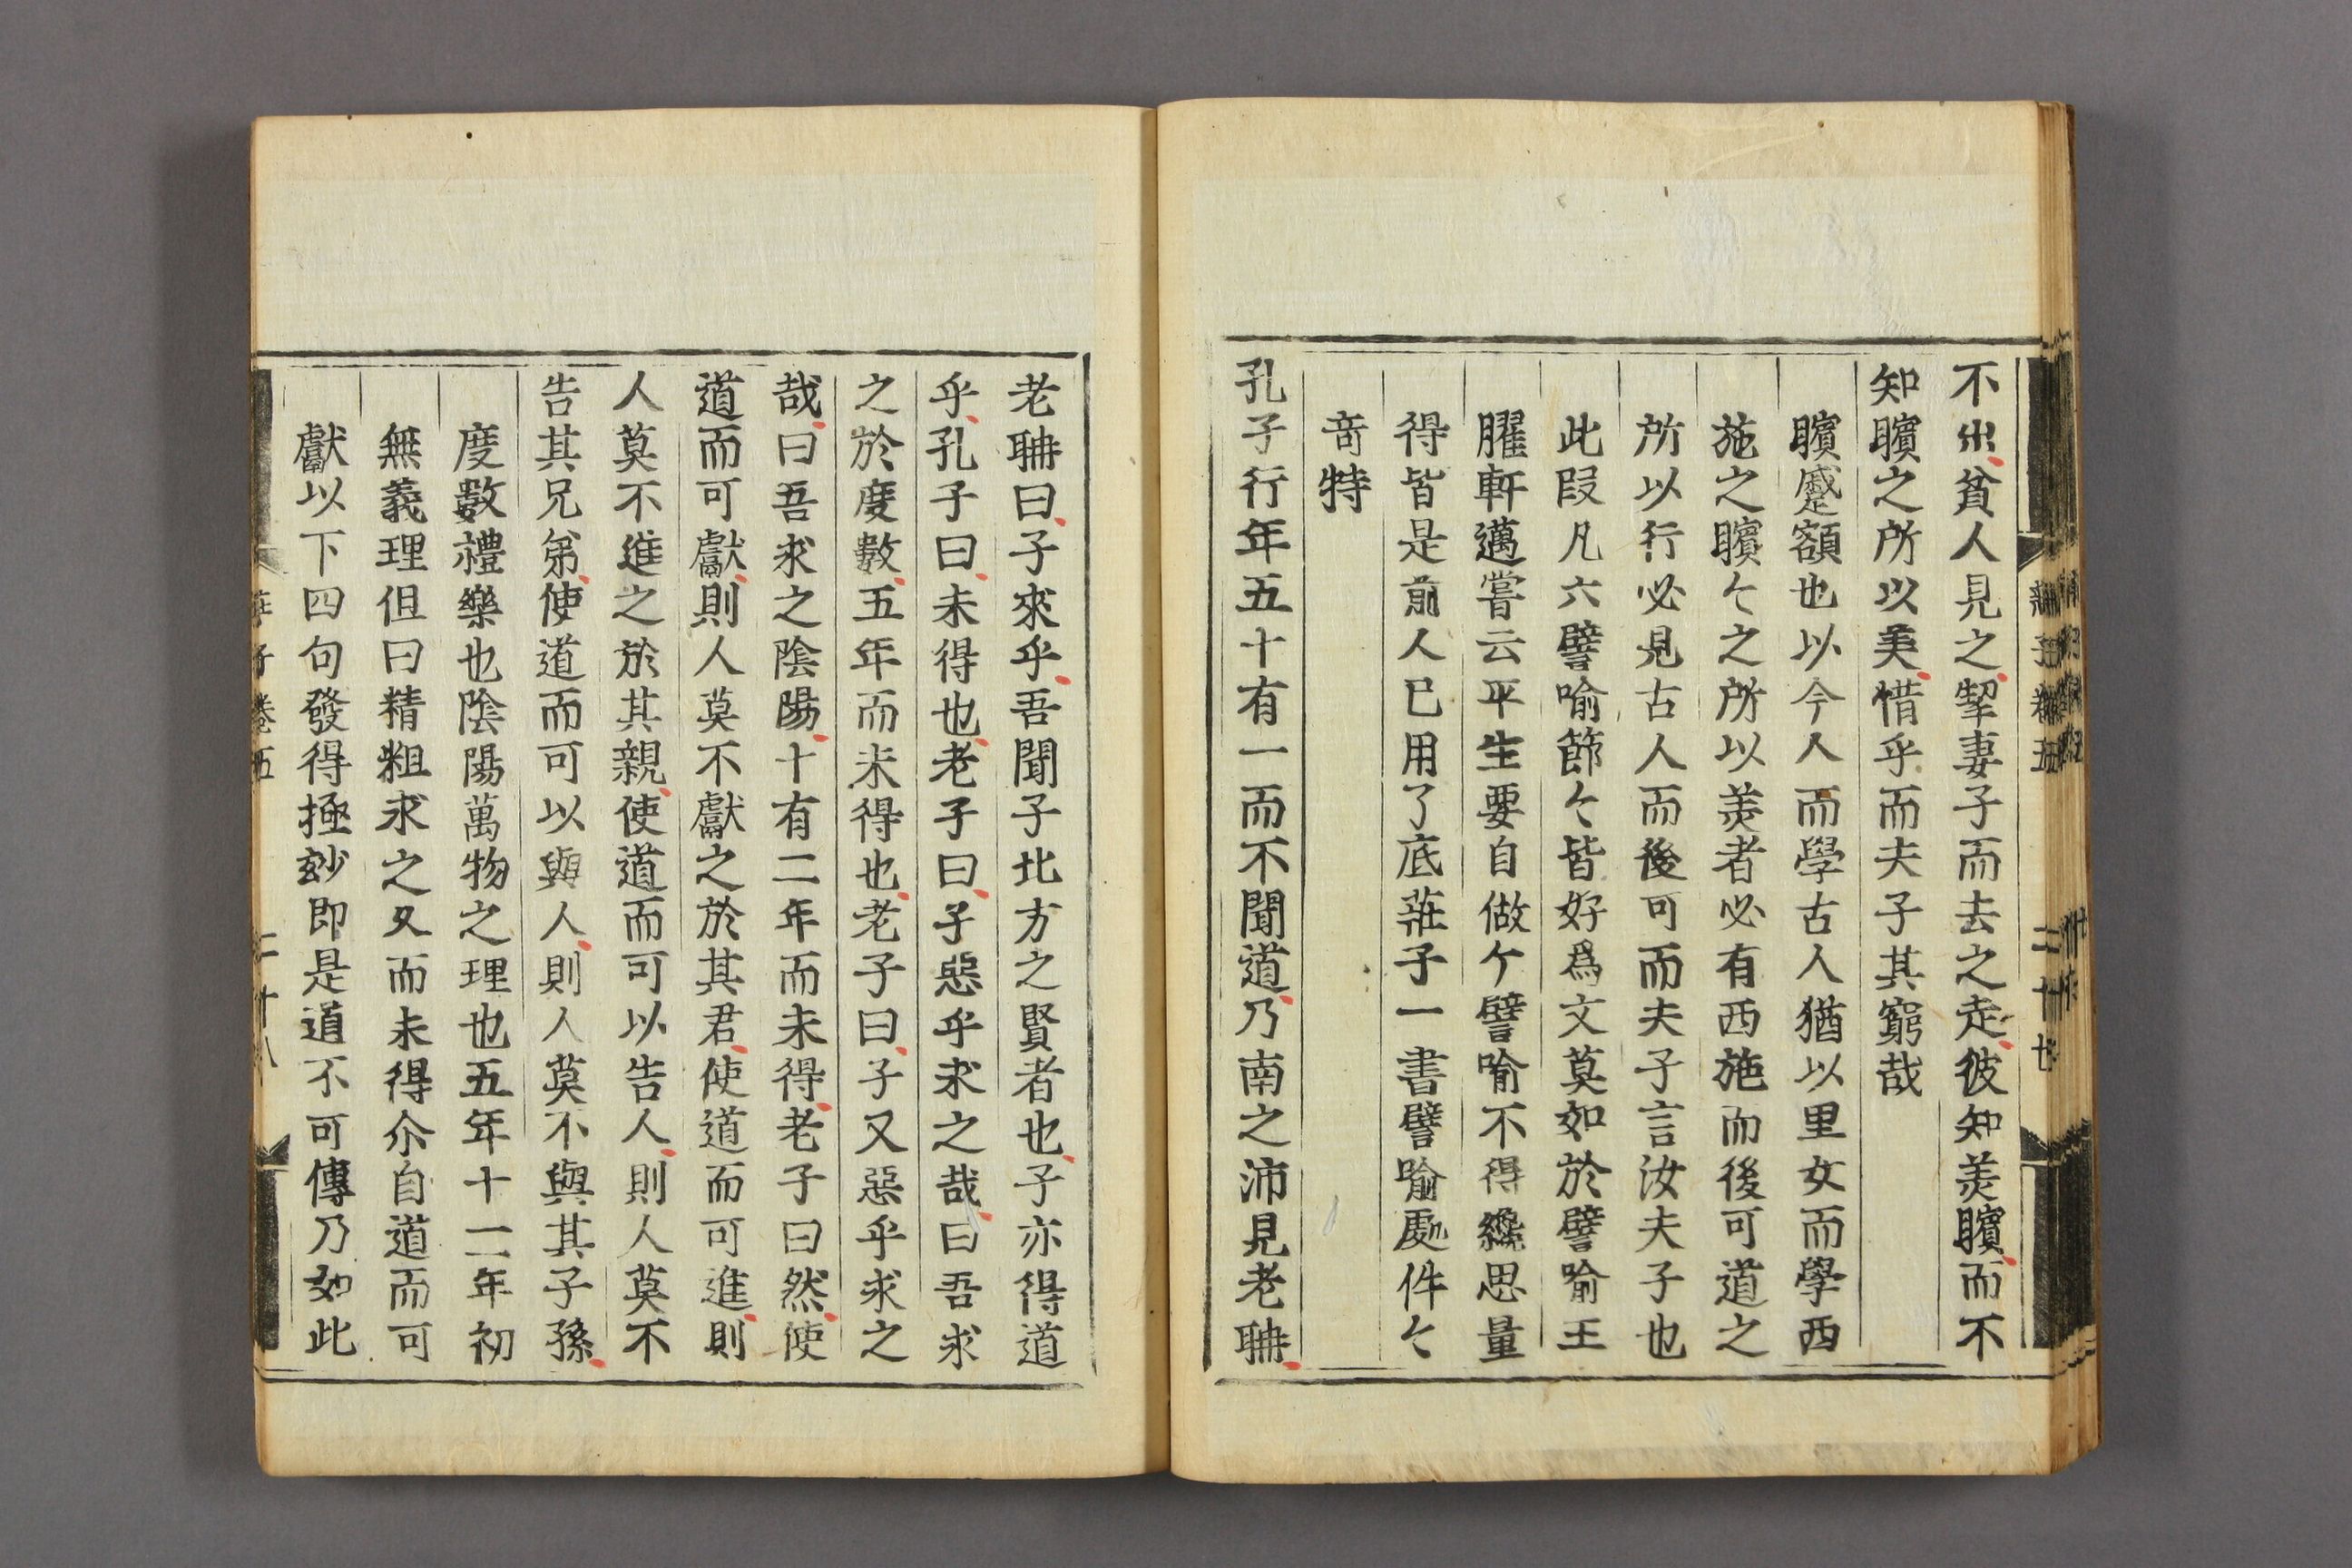 不出貧人見之挈妻子而去之走彼知美矉而不
知矉之所以美惜乎而夫子其窮哉
矉蹙額也以今人而學古人猶以里女而學西
施之矉々之所以美者必有西施而後可道之
所以行必見古人而後可而夫子言汝夫子也
此段凡六譬喻節々皆好爲文莫如於譬喻王
臞軒邁嘗云平生要自做个譬喻不得纔思量
得皆是前人已用了底莊子一書譬喻處件々
竒特
孔子行年五十有一而不聞道乃南之沛見老聃
老聃曰子來乎吾聞子北方之賢者也子亦得道
乎孔子曰未得也老子曰子惡乎求之哉曰吾求
之於度數五年而未得也老子曰子又惡乎求之
哉曰吾求之陰陽十有二年而未得老子曰然使
道而可獻則人莫不獻之於其君使道而可進則
人莫不進之於其親使道而可以告人則人莫不
告其兄弟使道而可以與人則人莫不與其子孫
度數禮樂也陰陽萬物之理也五年十二年初
無義理但曰精粗求之又而未得尒自道而可
獻以下四句發得極玅即是道不可傳乃如此
莊子卷五
二十八